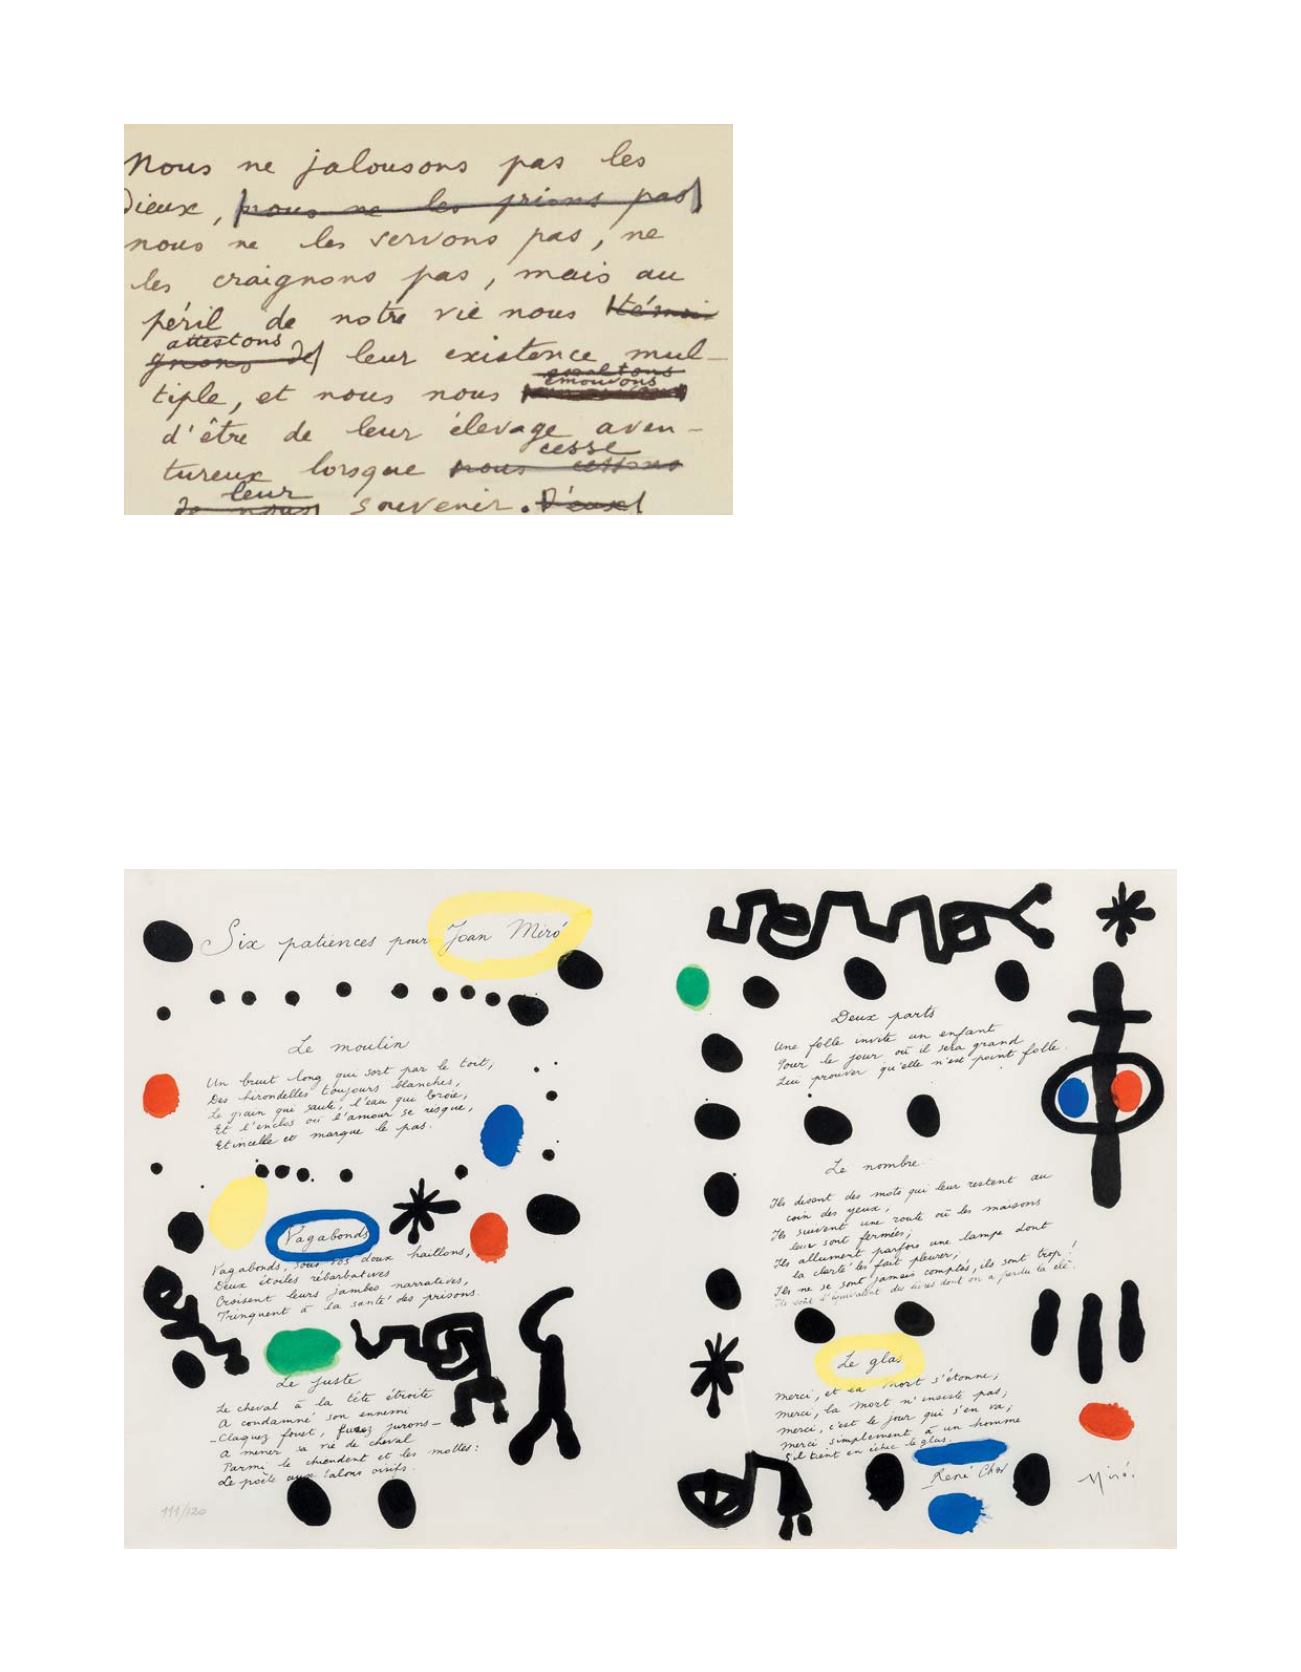 Nous ne jalousons pas les
Dieux, nous ne les prions pas
nous ne les servons pas, ne
les craignons pas, mais au
péril de notre vie nous témoi
attestons
gnons de leur existence mul-
exaltons
émouvons
tiple, et nous nous
d'être de leur élevage aven-
cesse
tureux lorsque nous cessons
leur
de nous souvenir. D'eux
Six patiences pour Joan Miró
Le moulin
Un bruit long qui sort par le toit,
Des hirondelles toujours blanches,
Le grain qui saute, l'eau qui broie,
Et l'enclos où l'amour se risque,
Etincelle et marque le pas.
Vagabonds
Vagabonds, sous vos doux haillons,
Deux étoiles rébarbatives
Croisent leurs jambes narratives,
Trinquent à la santé des prisons.
Le juste
Le cheval à la tête étroite
A condamné son ennemi
-Claquez fouet, jurons-
A mener sa vie de cheval
Parmi le chiendent et les mottes:
Le poète aux talons oisifs.
111/120
Deux parts
Une folle invite un enfant
Pour le jour où il sera grand
Lui prouver qu'elle n'est point folle.
Le nombre
Ils disent des mots qui leur restent au
coin des yeux;
Ils suivent une route où les maisons
leur sont fermées;
Ils allument parfois une lampe dont
la clarté les fait pleurer;
Ils ne se sont jamais comptés, ils sont trop!
Ils sont l'équivalent des livres dont on a perdu la clé.
Le glas
Merci, et la Mort s'étonne;
Merci, la Mort n'insiste pas;
Merci, c'est le jour qui s'en va;
Merci simplement à un homme
S'il tient en échec le glas.
René Char
Miró.